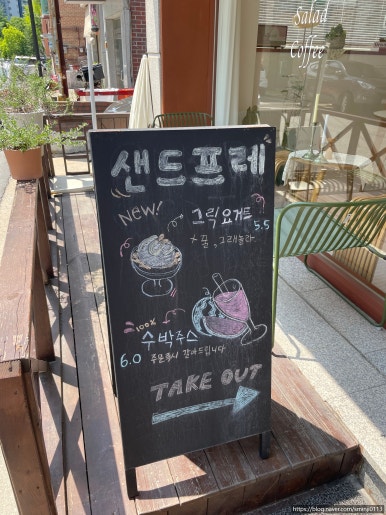 Salad
Coffee
샌드프레
NEW!
그릭요거트 5.5
+ 꿀, 그래놀라
100%
수박주스
6.0 주문즉시 갈아드립니다
TAKE OUT
https://blog.naver.com/sminji0113